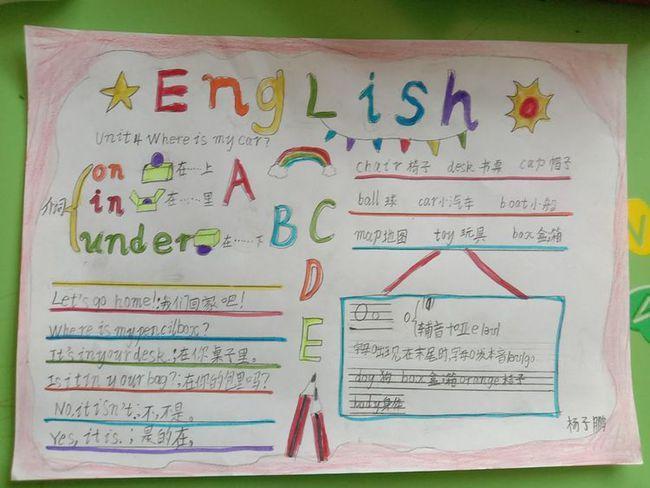 English
Unit4 Where is my car?
介词
on 在……上
in 在……里
under 在……下
A
B
C
D
E
Let's go home!:我们回家吧!
Where is my pencilbox?
It's in your desk.:在你桌子里。
Is it in your bag?:在你的包里吗?
No,it isn't.:不,不是。
Yes, it is.:是的在。
chair 椅子 desk 书桌 cap 帽子
ball 球 car小汽车 boat小船
map地图 toy 玩具 box 盒;箱
Oo
dog 狗 box 盒;箱 orange 桔子
body 身体
杨子鹏